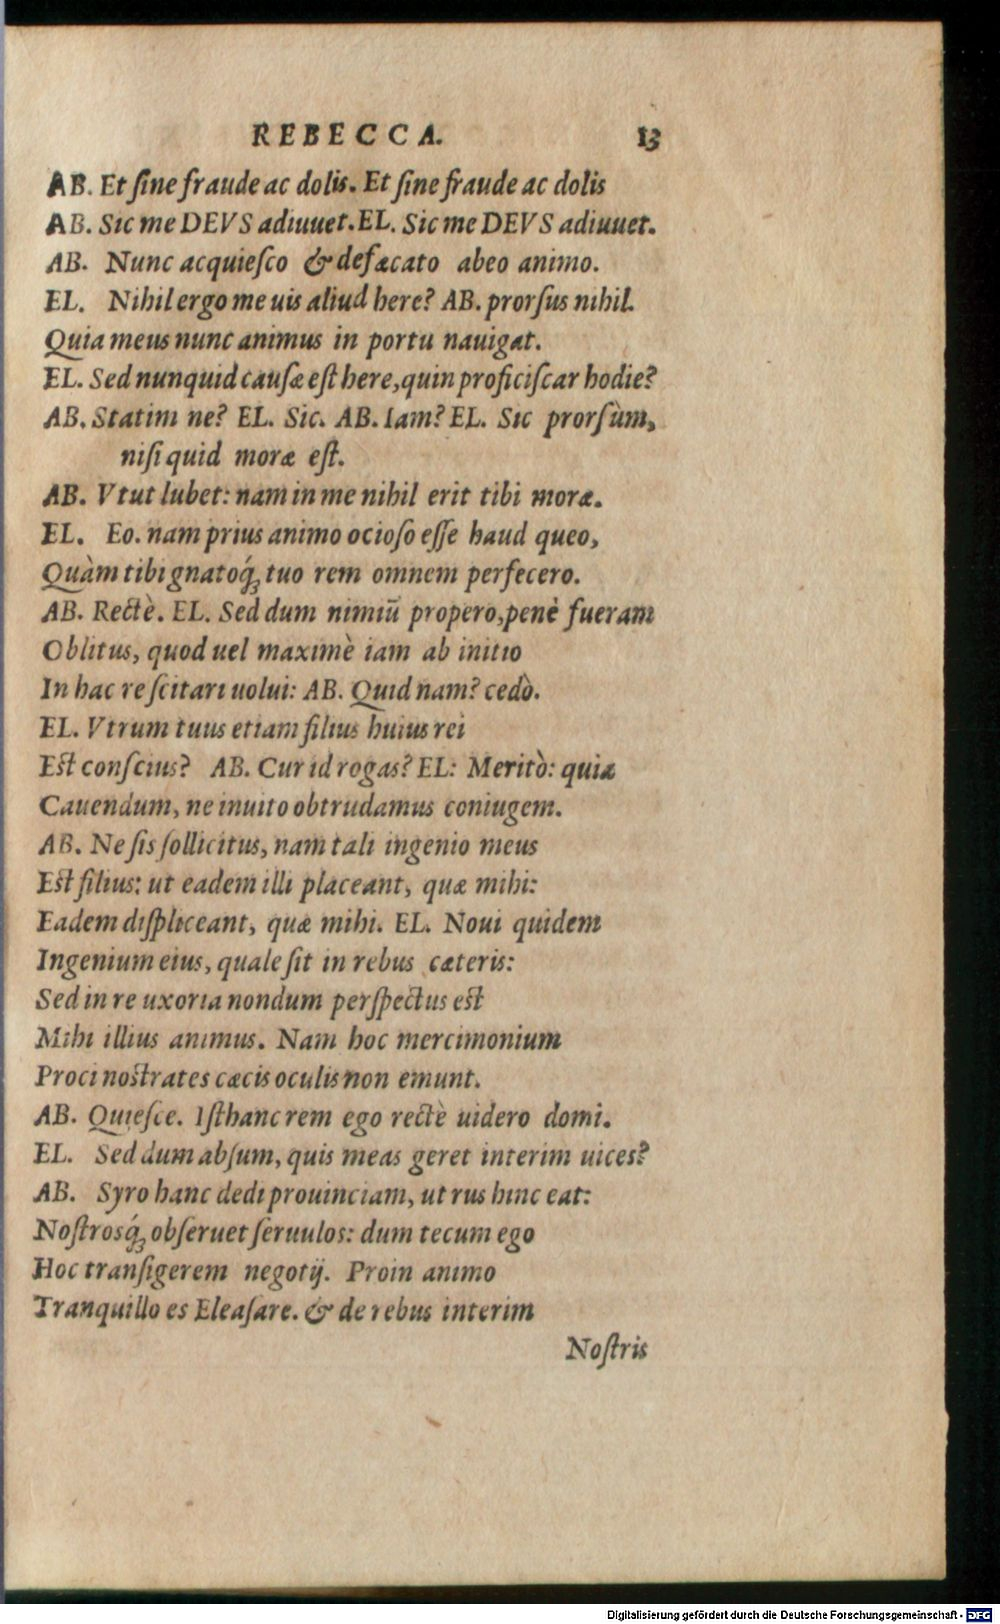 REBECCA. 13
AB. Et ſine fraude ac dolis. Et ſine fraude ac dolis
AB. Sic me DEVS adiuuet. EL. Sic me DEVS adiuuet.
AB. Nunc acquieſco & defæcato abeo animo.
EL. Nihil ergo me uis aliud here? AB. prorſus nihil.
Quia meus nunc animus in portu nauigat.
EL. Sed nunquid cauſæ eſt here, quin proficiſcar hodie?
AB. Statim ne? EL. Sic. AB. Iam? EL. Sic prorſùm,
niſi quid moræ eſt.
AB. Vtut lubet: nam in me nihil erit tibi moræ.
EL. Eo. nam prius animo ocioſo eſſe haud queo,
Quàm tibi gnatoq́ꝫ tuo rem omnem perfecero.
AB. Rectè. EL. Sed dum nimiū propero, penè fueram
Oblitus, quod uel maximè iam ab initio
In hac re ſcitari uolui: AB. Quid nam? cedò.
EL. Vtrum tuus etiam filius huius rei
Eſt conſcius? AB. Cur id rogas? EL: Meritò: quia
Cauendum, ne inuito obtrudamus coniugem.
AB. Ne ſis ſollicitus, nam tali ingenio meus
Eſt filius: ut eadem illi placeant, quæ mihi:
Eadem diſpliceant, quæ mihi. EL. Noui quidem
Ingenium eius, quale ſit in rebus cæteris:
Sed in re uxoria nondum perſpectus eſt
Mihi illius animus. Nam hoc mercimonium
Proci noſtrates cæcis oculis non emunt.
AB. Quieſce. Iſthanc rem ego rectè uidero domi.
EL. Sed dum abſum, quis meas geret interim uices?
AB. Syro hanc dedi prouinciam, ut rus hinc eat:
Noſtrosq́ꝫ obſeruet ſeruulos: dum tecum ego
Hoc tranſigerem negotij. Proin animo
Tranquillo es Eleaſare. & de rebus interim
Noſtris
Digitalisierung gefördert durch die Deutsche Forschungsgemeinschaft - DFG